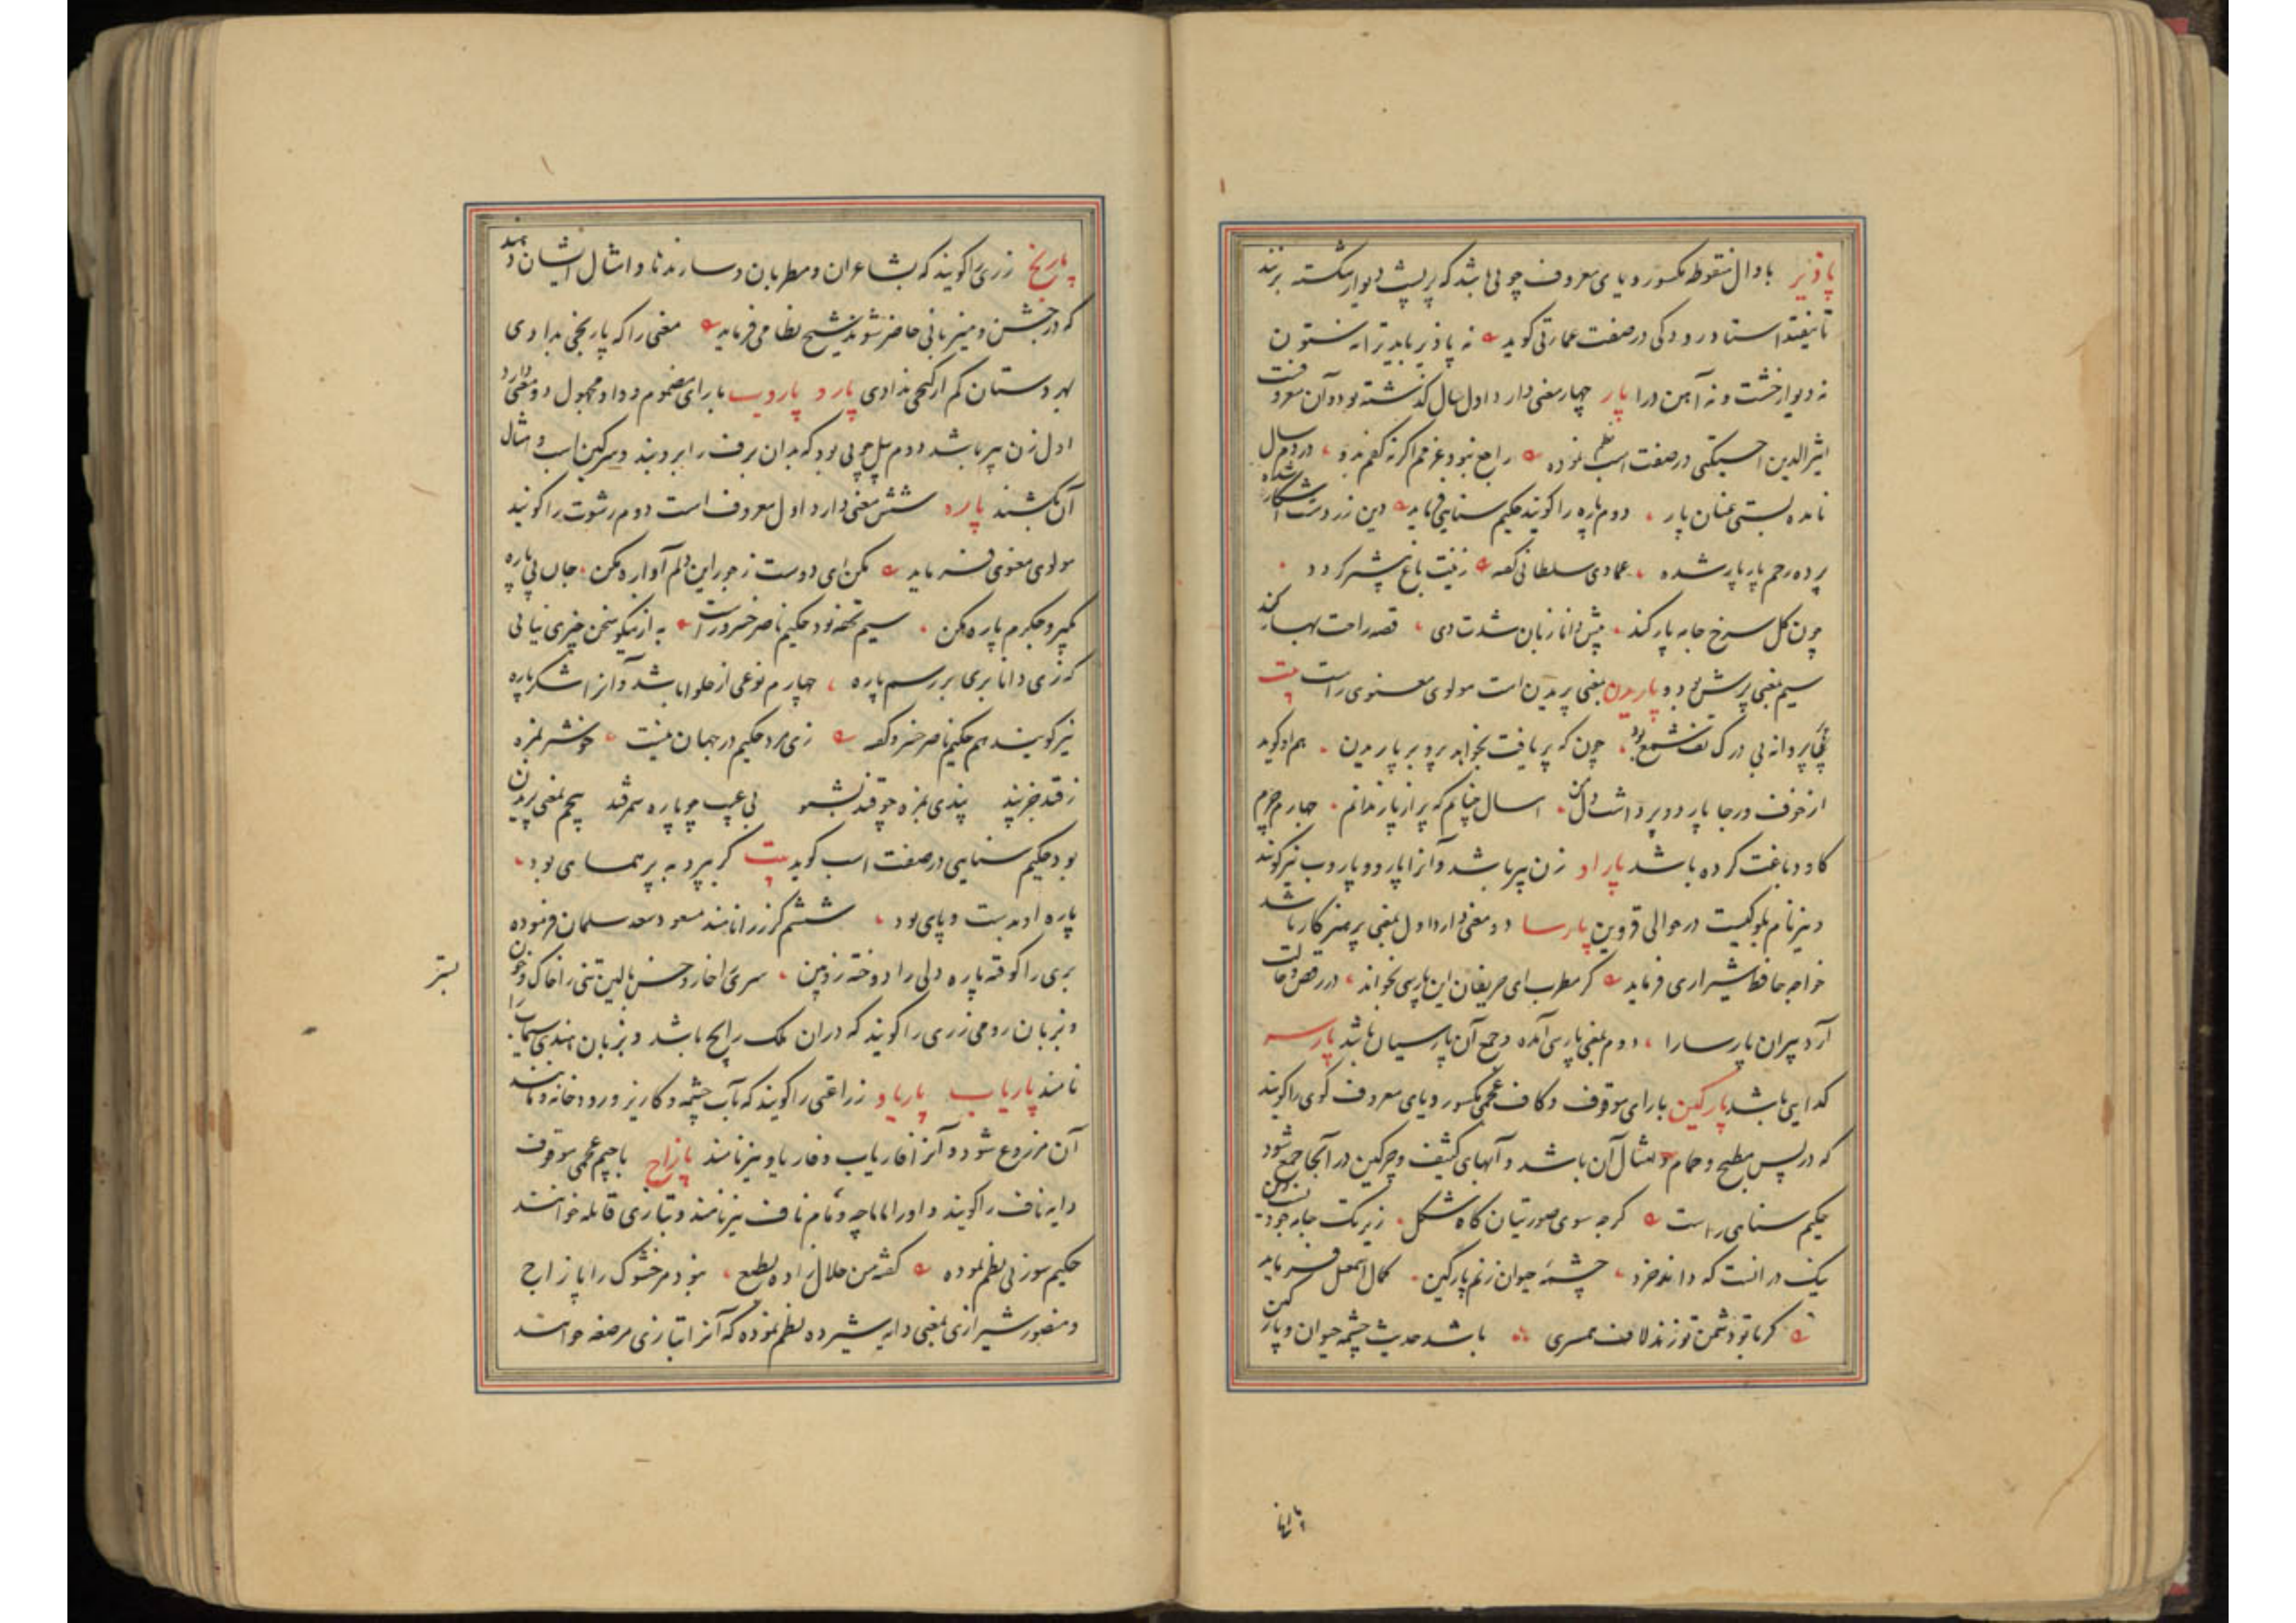 پاذیر با دال منقوطه مکسور و یای معروف چوبی باشد که بر پشت دیوار شکسته بزنند
تا نیفتد استاد رودکی در صفت عمارتی گوید نه پاذیر باید ترا نه ستون
نه دیوار خشت و نه آهن درا پار چهار معنی دارد اول سال گذشته بود و آن معروفست
اثیرالدین اخسیکتی در صفت اسب نموده راجع نبود عزمم اگر نه گفتم بدو در دم سال
مانده بستی عنان پار دوم پاره را گویند حکیم سنایی فرماید دین زردشت آشکار شده
پرده رحم پار پار شده عمادی سلطانی گفته زینت باغ بیشتر گردد
چون گل سرخ جامه پار کند پیش دانا زبان شدت دی قصه راحت بهار کند
سیم بمعنی پرش بود و پاریدن بمعنی پریدن است مولوی معنوی راست بیت
پروانه بی درک تف شمع بود چون که پر یافت بخواهد پرو بر پاریدن هم او گوید
از خوف و رجا پار دو پر داشت دل من امسال چنانم که پر از پار ندانم چهارم چرم
گاو دباغت کرده باشد پاراو زن پیر باشد و آنرا پارو و پاروب نیز گویند
و نیز نام بلوکیست در حوالی قزوین پارسا دو معنی دارد اول بمعنی پرهیزکار باشد
خواجه حافظ شیرازی فرماید گر مطرب ای حریفان این پارسی بخواند در رقص و حالت
آرد پیران پارسا را دوم بمعنی پارسی آمده و جمع آن پارسیان باشد پارسه
گدایی باشد پارگین با رای موقوف و کاف عجمی مکسور و یای معروف گوی را گویند
که در پس مطبخ و حمام و امثال آن باشد و آبهای کثیف و چرکین در آنجا جمع شود
حکیم سنایی راست گرچه سوی صورتیان گاه شکل زیر یک جامه جود
یک در انست که داند خرد چشمه حیوان زنم پارگین کمال اسمعیل فرماید
گر با تو دشمن تو زند لاف همسری باشد حدیث چشمه حیوان و پارگین
پارنج زری را گویند که بشاعران و مطربان و سازنده‌ها و امثال ایشان دهند
که در جشن و میزبانی حاضر شوند شیخ نظامی فرماید مغنی را که پارنجی بدادی
بهر دستان کم از گنجی ندادی پارو پاروب با رای مضموم و واو مجهول دو معنی دارد
اول زن پیر باشد دوم بیل چوبی بود که بدان برف را بروبند و سرگین اسب و امثال
آن بکشند پاره شش معنی دارد اول معروف است دوم رشوت را گویند
مولوی معنوی فرماید مکن ای دوست ز جور این دلم آواره مکن جان بی پاره
بگیر و جگرم پاره مکن سیم تحفه بود حکیم ناصر خسرو راست به از نیکو سخن چیزی نیابی
که زی دانا بری بر رسم پاره چهارم نوعی از حلوا باشد و آنرا شکرپاره
نیز گویند هم حکیم ناصر خسرو گفته زی مرد حکیم در جهان نیست خوشتر بمزه
ز قند جز پند پندی بمزه چو قند بشنو بی عیب چو پاره سمرقند پنجم بمعنی پریدن
بود حکیم سنایی در صفت اسب گوید بیت گر بپرد به پر همای بود
پاره او به دست و پای بود ششم گرز را نامند مسعود سعد سلمان فرموده
بری را کوفته پاره دلی را دوخته زوبین سری را خار و خس بالین تنی را خاک و خون
بستر
و بزبان رومی زری را گویند که در ان ملک رایج باشد و بزبان هندی سیماب را
نامند پاریاب پاریاو زراعتی را گویند که بآب چشمه و کاریز و رودخانه و مانند
آن مزروع شود و آنرا فاریاب و فاریاو نیز نامند پازاج با جیم عجمی موقوف
دایه ناف را گویند و او را ماماچه و مام ناف نیز نامند و بتازی قابله خوانند
حکیم سوزنی نظم نموده گفته من حلال زاده بطبع نبود مر خشوک را پازاج
و منصور شیرازی بمعنی دایه شیرده نظم نموده که آنرا بتازی مرضعه خوانند